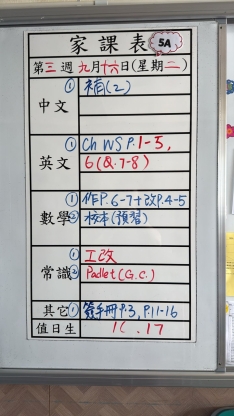 家課表 5A
第三週九月十六日(星期二)
中文 ① 補(2)
英文 ① Ch WS P.1-5,
6(Q.7-8)
數學 ① 作P.6-7+改P.4-5
② 校本(預習)
常識 ① 工改
② Padlet(G.C.)
其它 ① 簽手冊P.3, P.11-16
值日生 16、17